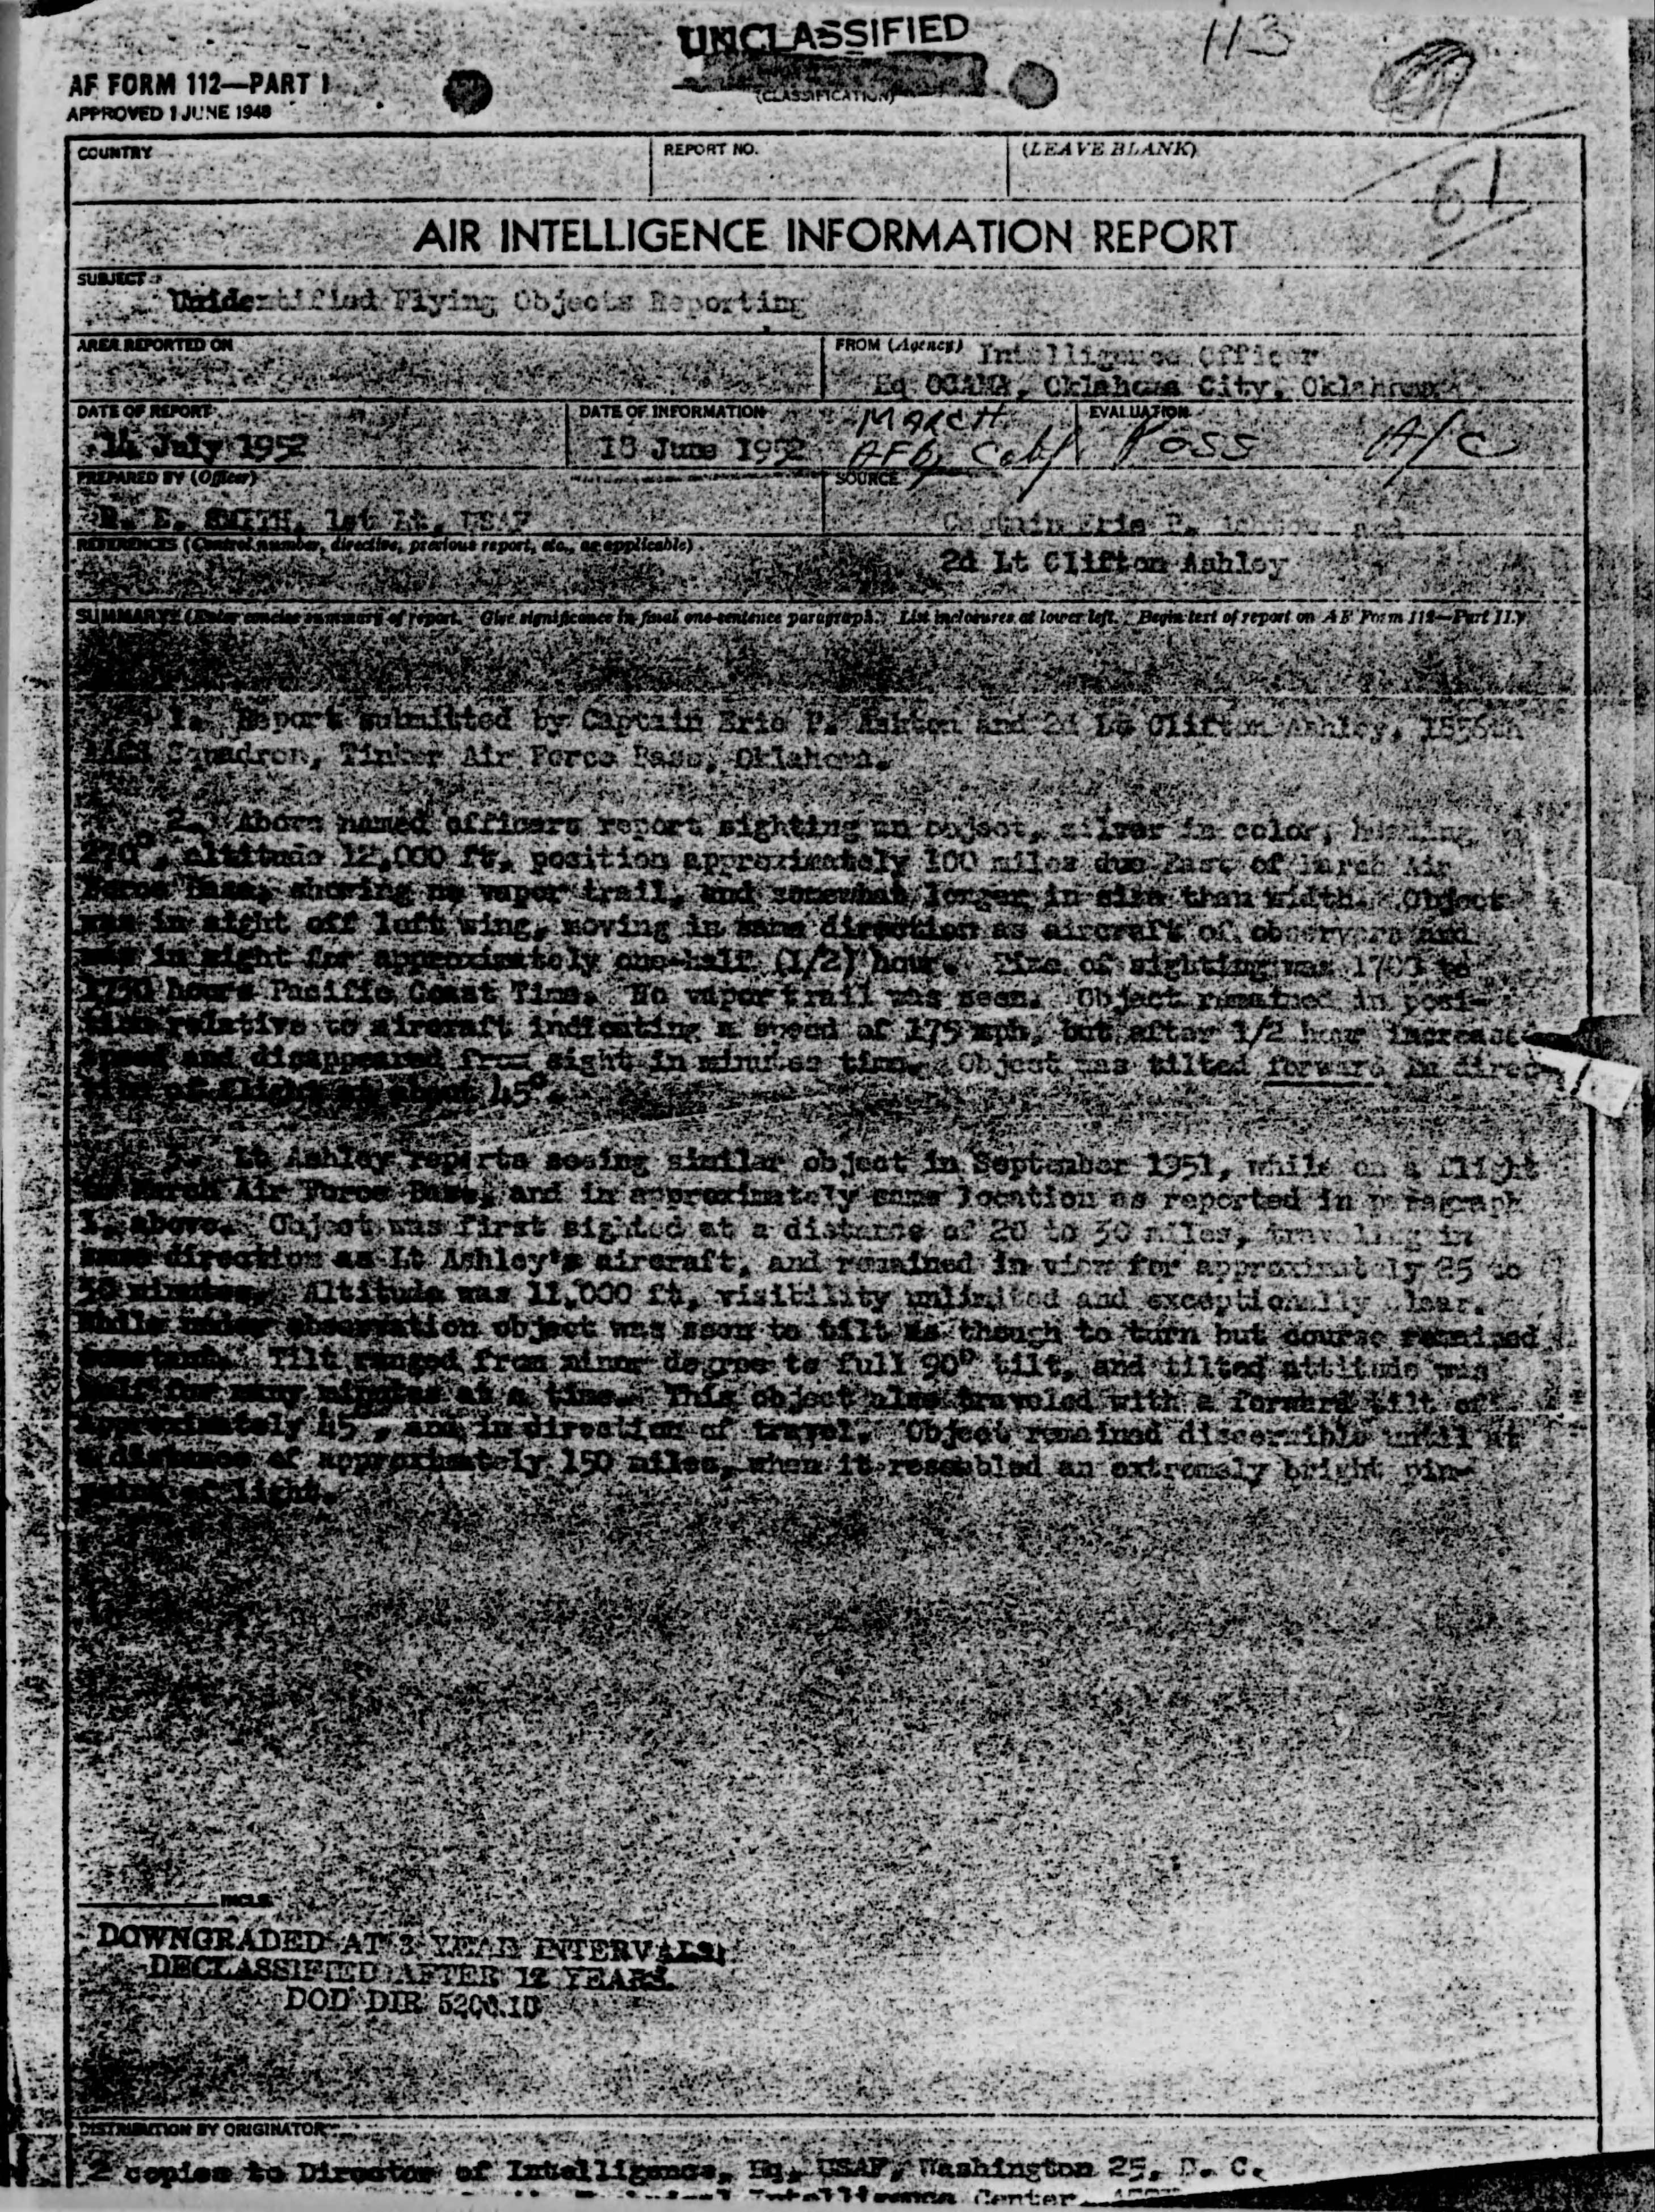 UNCLASSIFIED
113
(CLASSIFICATION)
AF FORM 112—PART I
APPROVED 1 JUNE 1948
COUNTRY
REPORT NO.
(LEAVE BLANK)
61
AIR INTELLIGENCE INFORMATION REPORT
SUBJECT
Unidentified Flying Objects Reporting
AREA REPORTED ON
FROM (Agency)
Intelligence Officer
Hq OCAMA, Oklahoma City, Oklahoma
DATE OF REPORT
14 July 1952
DATE OF INFORMATION
18 June 1952
MARCH
AFB, Calif
EVALUATION
Poss A/C
PREPARED BY (Officer)
SMITH, 1st Lt, USAF
SOURCE
Captain Eric P. and
2d Lt Clifton Ashley
REFERENCES (Control number, directive, previous report, etc., as applicable)
SUMMARY: (Enter concise summary of report. Give significance in final one-sentence paragraph. List inclosures at lower left. Begin text of report on AF Form 112—Part II.)
1. Report submitted by Captain Eric P. Ashton and 2d Lt Clifton Ashley,
Squadron, Tinker Air Force Base, Oklahoma.
2. Above named officers report sighting an object, silver in color, heading
270°, altitude 12,000 ft, position approximately 100 miles due East of March Air
Force Base, showing no vapor trail, and somewhat longer in size than width. Object
was in sight off left wing, moving in same direction as aircraft of observers and
was in sight for approximately one-half (1/2) hour. Time of sighting was to
1730 hours Pacific Coast Time. No vapor trail was seen. Object remained in posi-
tion relative to aircraft indicating a speed of 175 mph, but after 1/2 hour increased
speed and disappeared from sight in minutes time. Object was tilted forward in direc-
tion of flight at about 45°.
3. Lt Ashley reports seeing similar object in September 1951, while on a flight
to March Air Force Base, and in approximately same location as reported in paragraph
1, above. Object was first sighted at a distance of 20 to 30 miles, traveling in
same direction as Lt Ashley's aircraft, and remained in view for approximately 25 to
30 minutes. Altitude was 11,000 ft, visibility unlimited and exceptionally clear.
While under observation object was seen to tilt as though to turn but course remained
constant. Tilt ranged from minor degree to full 90° tilt, and tilted attitude was
for many minutes at a time. This object also traveled with a forward tilt of
approximately 45°, and in direction of travel. Object remained discernible until at
a distance of approximately 150 miles, when it resembled an extremely bright pin-
point of light.
INCLS
DOWNGRADED AT 3 YEAR INTERVALS;
DECLASSIFIED AFTER 12 YEARS.
DOD DIR 5200.10
DISTRIBUTION BY ORIGINATOR
2 copies to Director of Intelligence, Hq, USAF, Washington 25, D. C.
Technical Intelligence Center